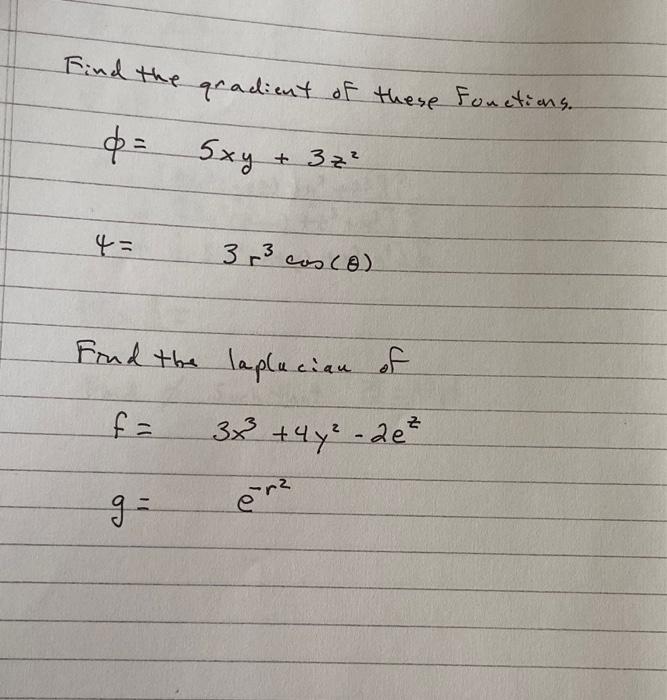 Find the gradient of these Fonctions.
ϕ = 5xy + 3z²
ψ = 3r³ cos(θ)
Find the laplacian of
f = 3x³ + 4y² - 2eᶻ
g = e^-r²